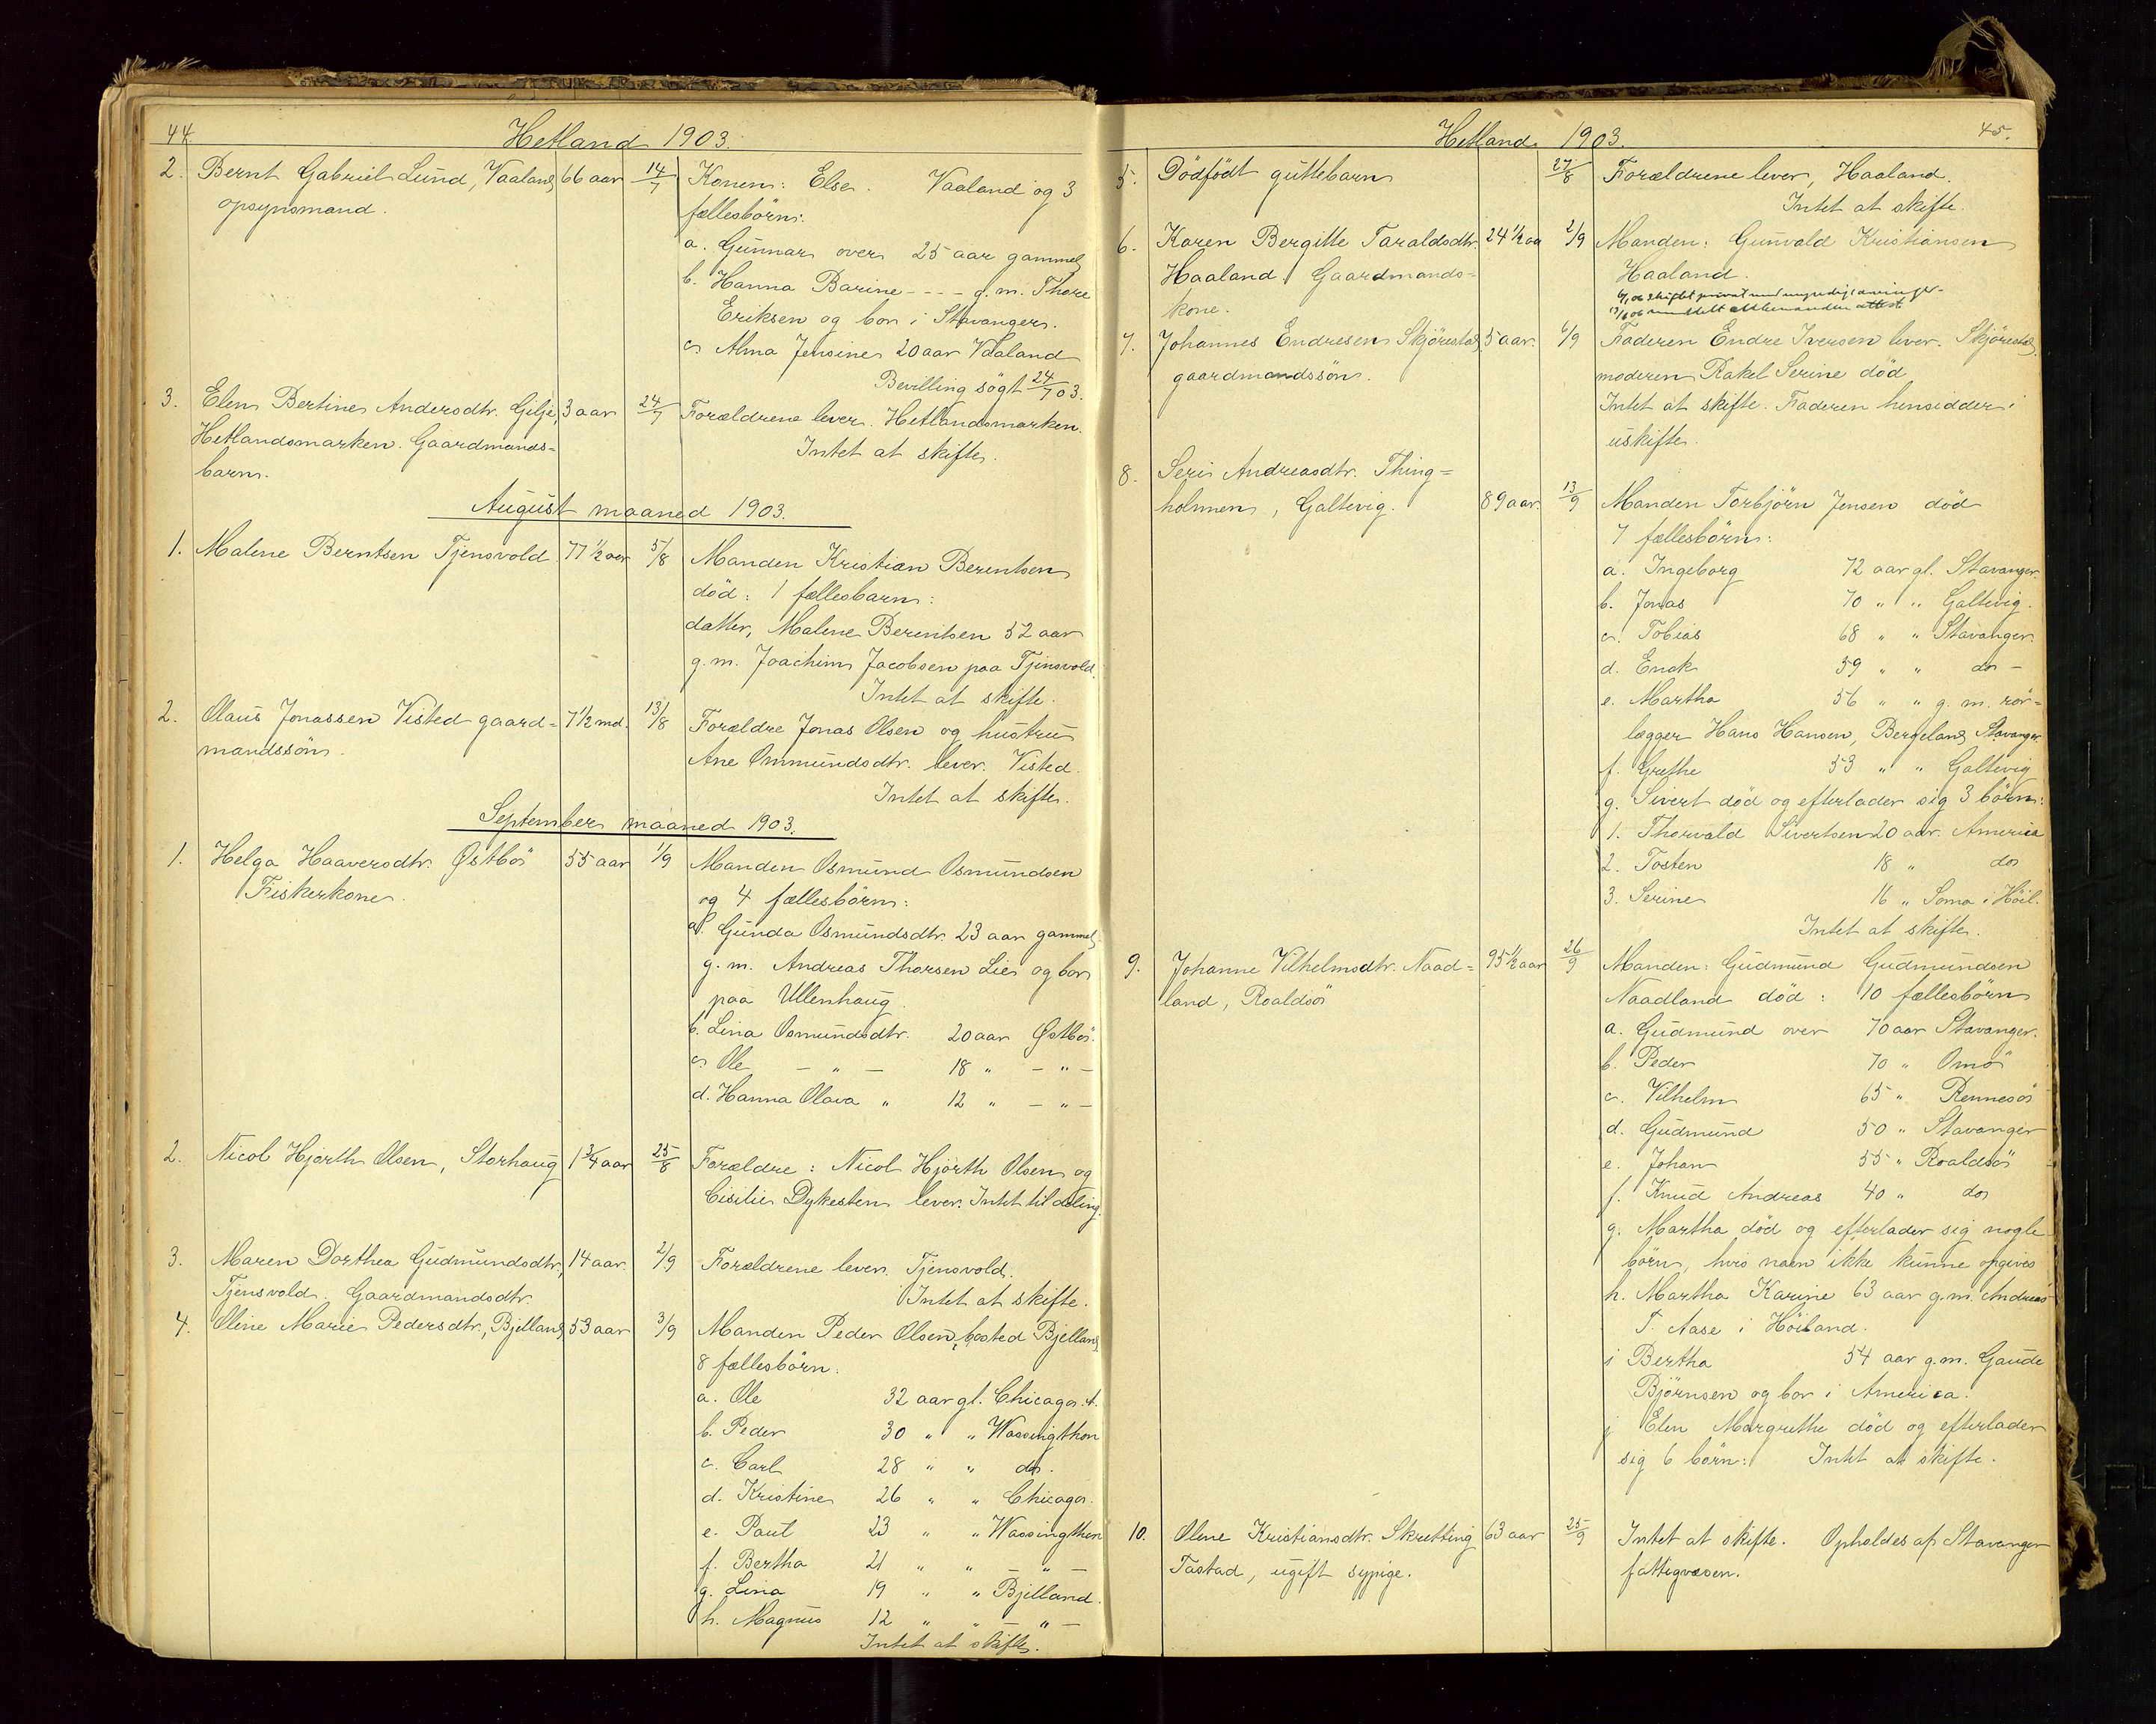 44.
Hetland 1903.
2. Bernt Gabriel Lund, Vaaland 66 aar 14/7 Konen: Else. Vaaland og 3
opsynsmand. fællesbörn:
a. Gunnar over 25 aar gammel
b. Hanna Barine - - - g. m. Thore
Eriksen og bor i Stavanger.
c. Alma Jensine 20 aar Vaaland
Bevilling søgt 24/7 03.
3. Elen Bertine Andersdtr. Gilje, 3 aar 24/7 Forældrene lever. Hetlandsmarken.
Hetlandsmarken. Gaardmands= Intet at skifte.
barn.
August maaned 1903.
1. Malene Berntsen Tjensvold 77 1/2 aar 5/8 Manden Kristian Berentsen
død: 1 fællesbarn:
datter, Malene Berentsen 52 aar
g. m. Joachim Jacobsen paa Tjensvold.
Intet at skifte.
2. Olaus Jonassen Visted gaard= 7 1/2 md. 13/8 Forældre Jonas Olsen og hustru
mandssøn. Ane Ommundsdtr. lever. Visted.
Intet at skifte.
September maaned 1903.
1. Helga Haaversdtr. Østbö 55 aar 1/9 Manden Osmund Osmundsen
Fiskerkone. og 4 fællesbörn:
a. Gunda Osmundsdtr. 23 aar gammel
g. m. Andreas Thorsen Lie og bor
paa Ullenhaug.
b. Lina Osmundsdtr. 20 aar Østbö.
c. Ole — " — 18 " — " —
d. Hanna Olava " 12 " — " —
2. Nicol Hjorth Olsen, Storhaug 1 3/4 aar 25/8 Forældre: Nicol Hjorth Olsen og
Cisilie Dykesten lever. Intet til deling.
3. Maren Dorthea Gudmundsdtr., 14 aar. 2/9 Forældrene lever. Tjensvold.
Tjensvold. Gaardmandsdtr. Intet at skifte.
4. Oline Marie Pedersdtr., Bjelland, 53 aar 3/9 Manden Peder Olsen, bosted Bjelland,
8 fællesbörn:
a. Ole 32 aar gl. Chicago. A.
b. Peder 30 " " Wassingthon
c. Carl 28 " " do.
d. Kristine 26 " " Chicago.
e. Paul 23 " " Wassingthon
f. Bertha 21 " " — " —
g. Lina 19 " " Bjelland.
h. Magnus 12 " " — " —
Intet at skifte.
45.
Hetland 1903.
5. Dödfödt guttebarn 27/8 Forældrene lever, Haaland.
Intet at skifte.
6. Karen Bergitte Taraldsdtr. 24 1/2 aa 2/9 Manden: Gunvald Kristiansen
Haaland. Gaardmands= Haaland.
kone.
7. Johannes Endresen Skjörestad, 5 aar. 6/9 Faderen Endre Iversen lever. Skjörestad,
gaardmandssøn. moderen Rakel Serine död
Intet at skifte. Faderen hensidder i
uskifte.
8. Seri Andreasdtr. Thing=
holmen, Galtevig. 89 aar. 13/9 Manden Torbjörn Jensen död
7 fællesbörn:
a. Ingeborg 72 aar gl. Stavanger.
b. Jonas 70 " " Galtevig.
c. Tobias 68 " " Stavanger.
d. Enok 59 " " do —
e. Martha 56 " " g. m. rör=
lægger Hans Hansen, Bergeland, Stavanger.
f. Grethe 53 " " Galtevig
g. Sivert död og efterlader sig 3 börn:
1. Thorvald Sivertsen 20 aar. America
2. Tosten 18 " do
3. Serine 16 " Soma i Höil.
Intet at skifte.
9. Johanne Vilhelmsdtr. Naad= 95 1/2 aar 26/9 Manden: Gudmund Gudmundsen
land, Roaldsö Naadland död: 10 fællesbörn
a. Gudmund over 70 aar Stavanger.
b. Peder 70 " Omö
c. Vilhelm 65 " Rennesö
d. Gudmund 50 " Stavanger
e. Johan 55 " Roaldsö
f. Knud Andreas 40 " do
g. Martha död og efterlader sig nogle
börn, hvis navn ikke kunne opgives
h. Martha Karine 63 aar g. m. Andreas
T. Aase i Höiland.
i Bertha 54 aar g. m. Gaude
Björnsen og bor i America.
j Elen Margrethe död og efterlader
sig 6 börn: Intet at skifte.
10. Olene Kristiansdtr. Skretting 63 aar 25/9 Intet at skifte. Opholdes af Stavanger
Tastad, ugift sypige. fattigvæsen.